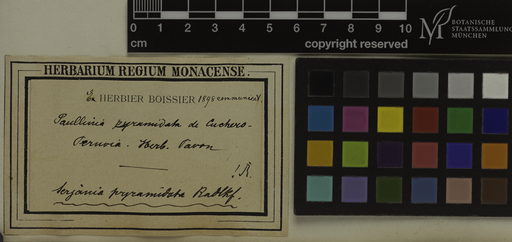 0 1 2 3 4 5 6 7 8 9 10
cm
copyright reserved
BOTANISCHE
STAATSSAMMLUNG
MÜNCHEN
HERBARIUM REGIUM MONACENSE.
Ex HERBIER BOISSIER 1898 communicat.
Paullinia pyramidata de Cuchero-
Peruvia. Herb. Pavon
! R.
Serjania pyramidata Radlkf.